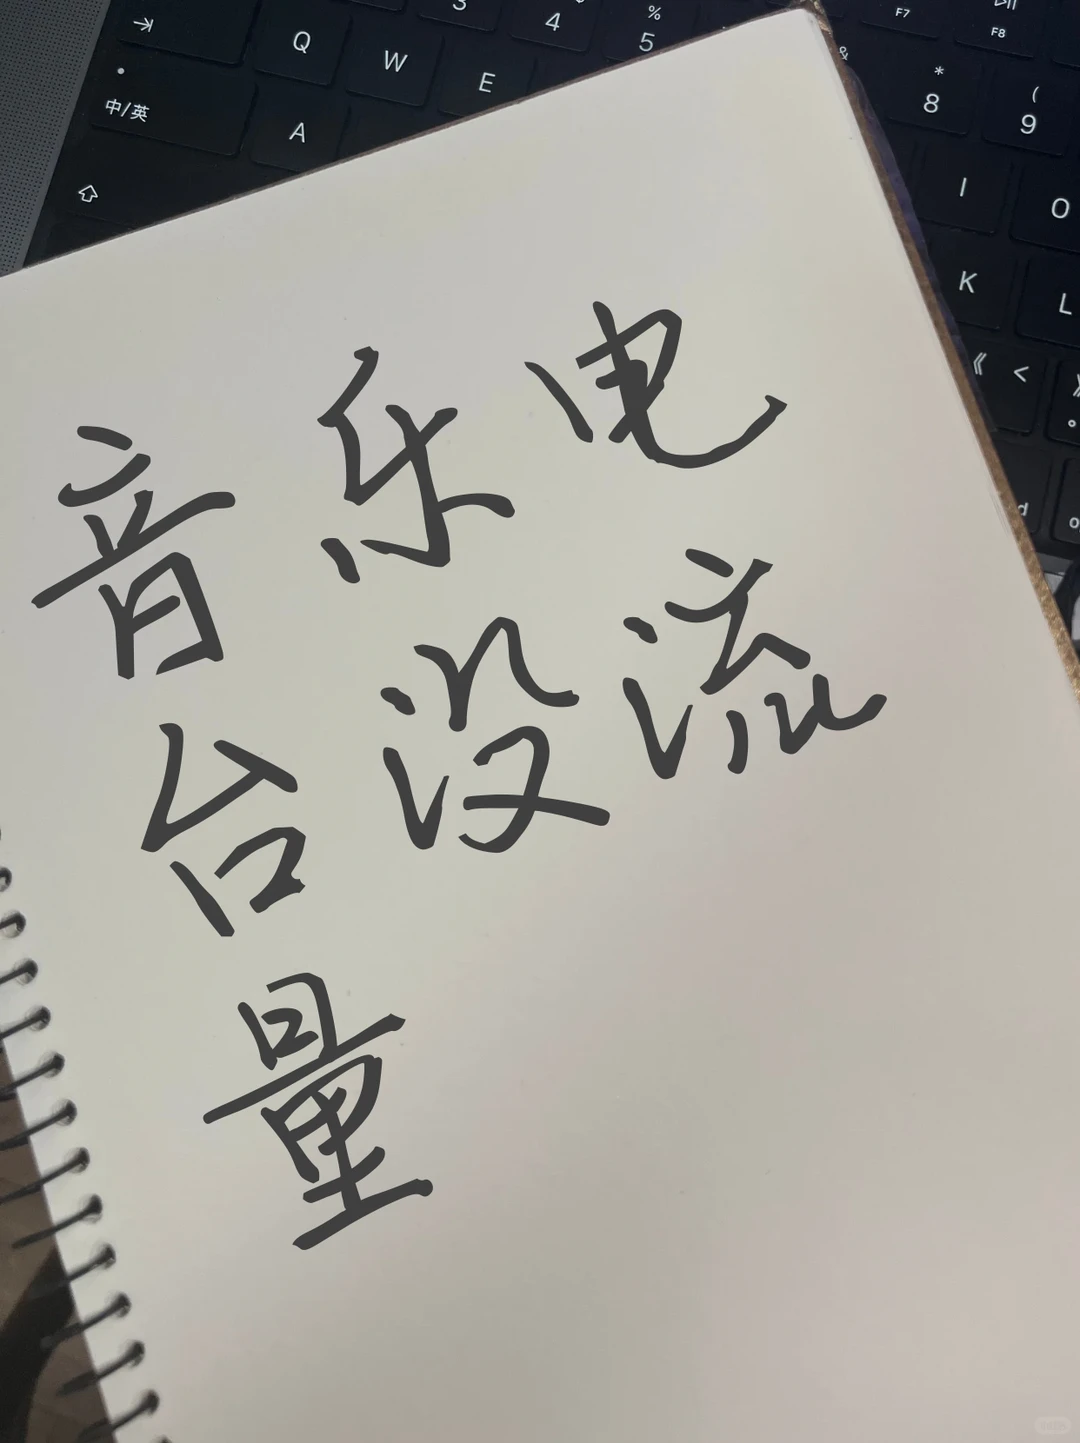 音乐电
台没流
量
Q W E
A
中/英
3 4 % 5
F7
F8
&
* 8
( 9
I O
K L
《 < 》 。